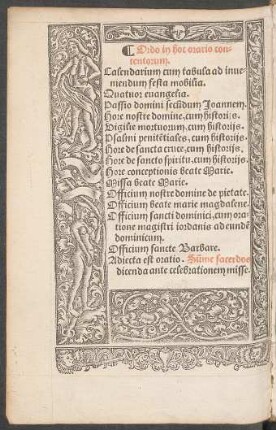 ¶ Ordo in hoc oratio con-
tentorum.
Calendarium cum tabula ad inue-
niendum festa mobilia.
Quatuor euangelia.
Passio domini secūdum Joannem.
Hore nostre domine, cum historijs.
Vigilie mortuorum, cum historijs.
Psalmi penitētiales, cum historijs.
Hore de sancta cruce, cum historijs.
Hore de sancto spiritu, cum historijs.
Hore conceptionis beate Marie.
Missa beate Marie.
Officium nostre domine de pietate.
Officium beate marie magdalene.
Officium sancti dominici, cum ora-
tione magistri iordanis ad eundē
dominicum.
Officium sancte Barbare.
Adiecta est oratio. Sūme sacerdos
dicenda ante celebrationem misse.